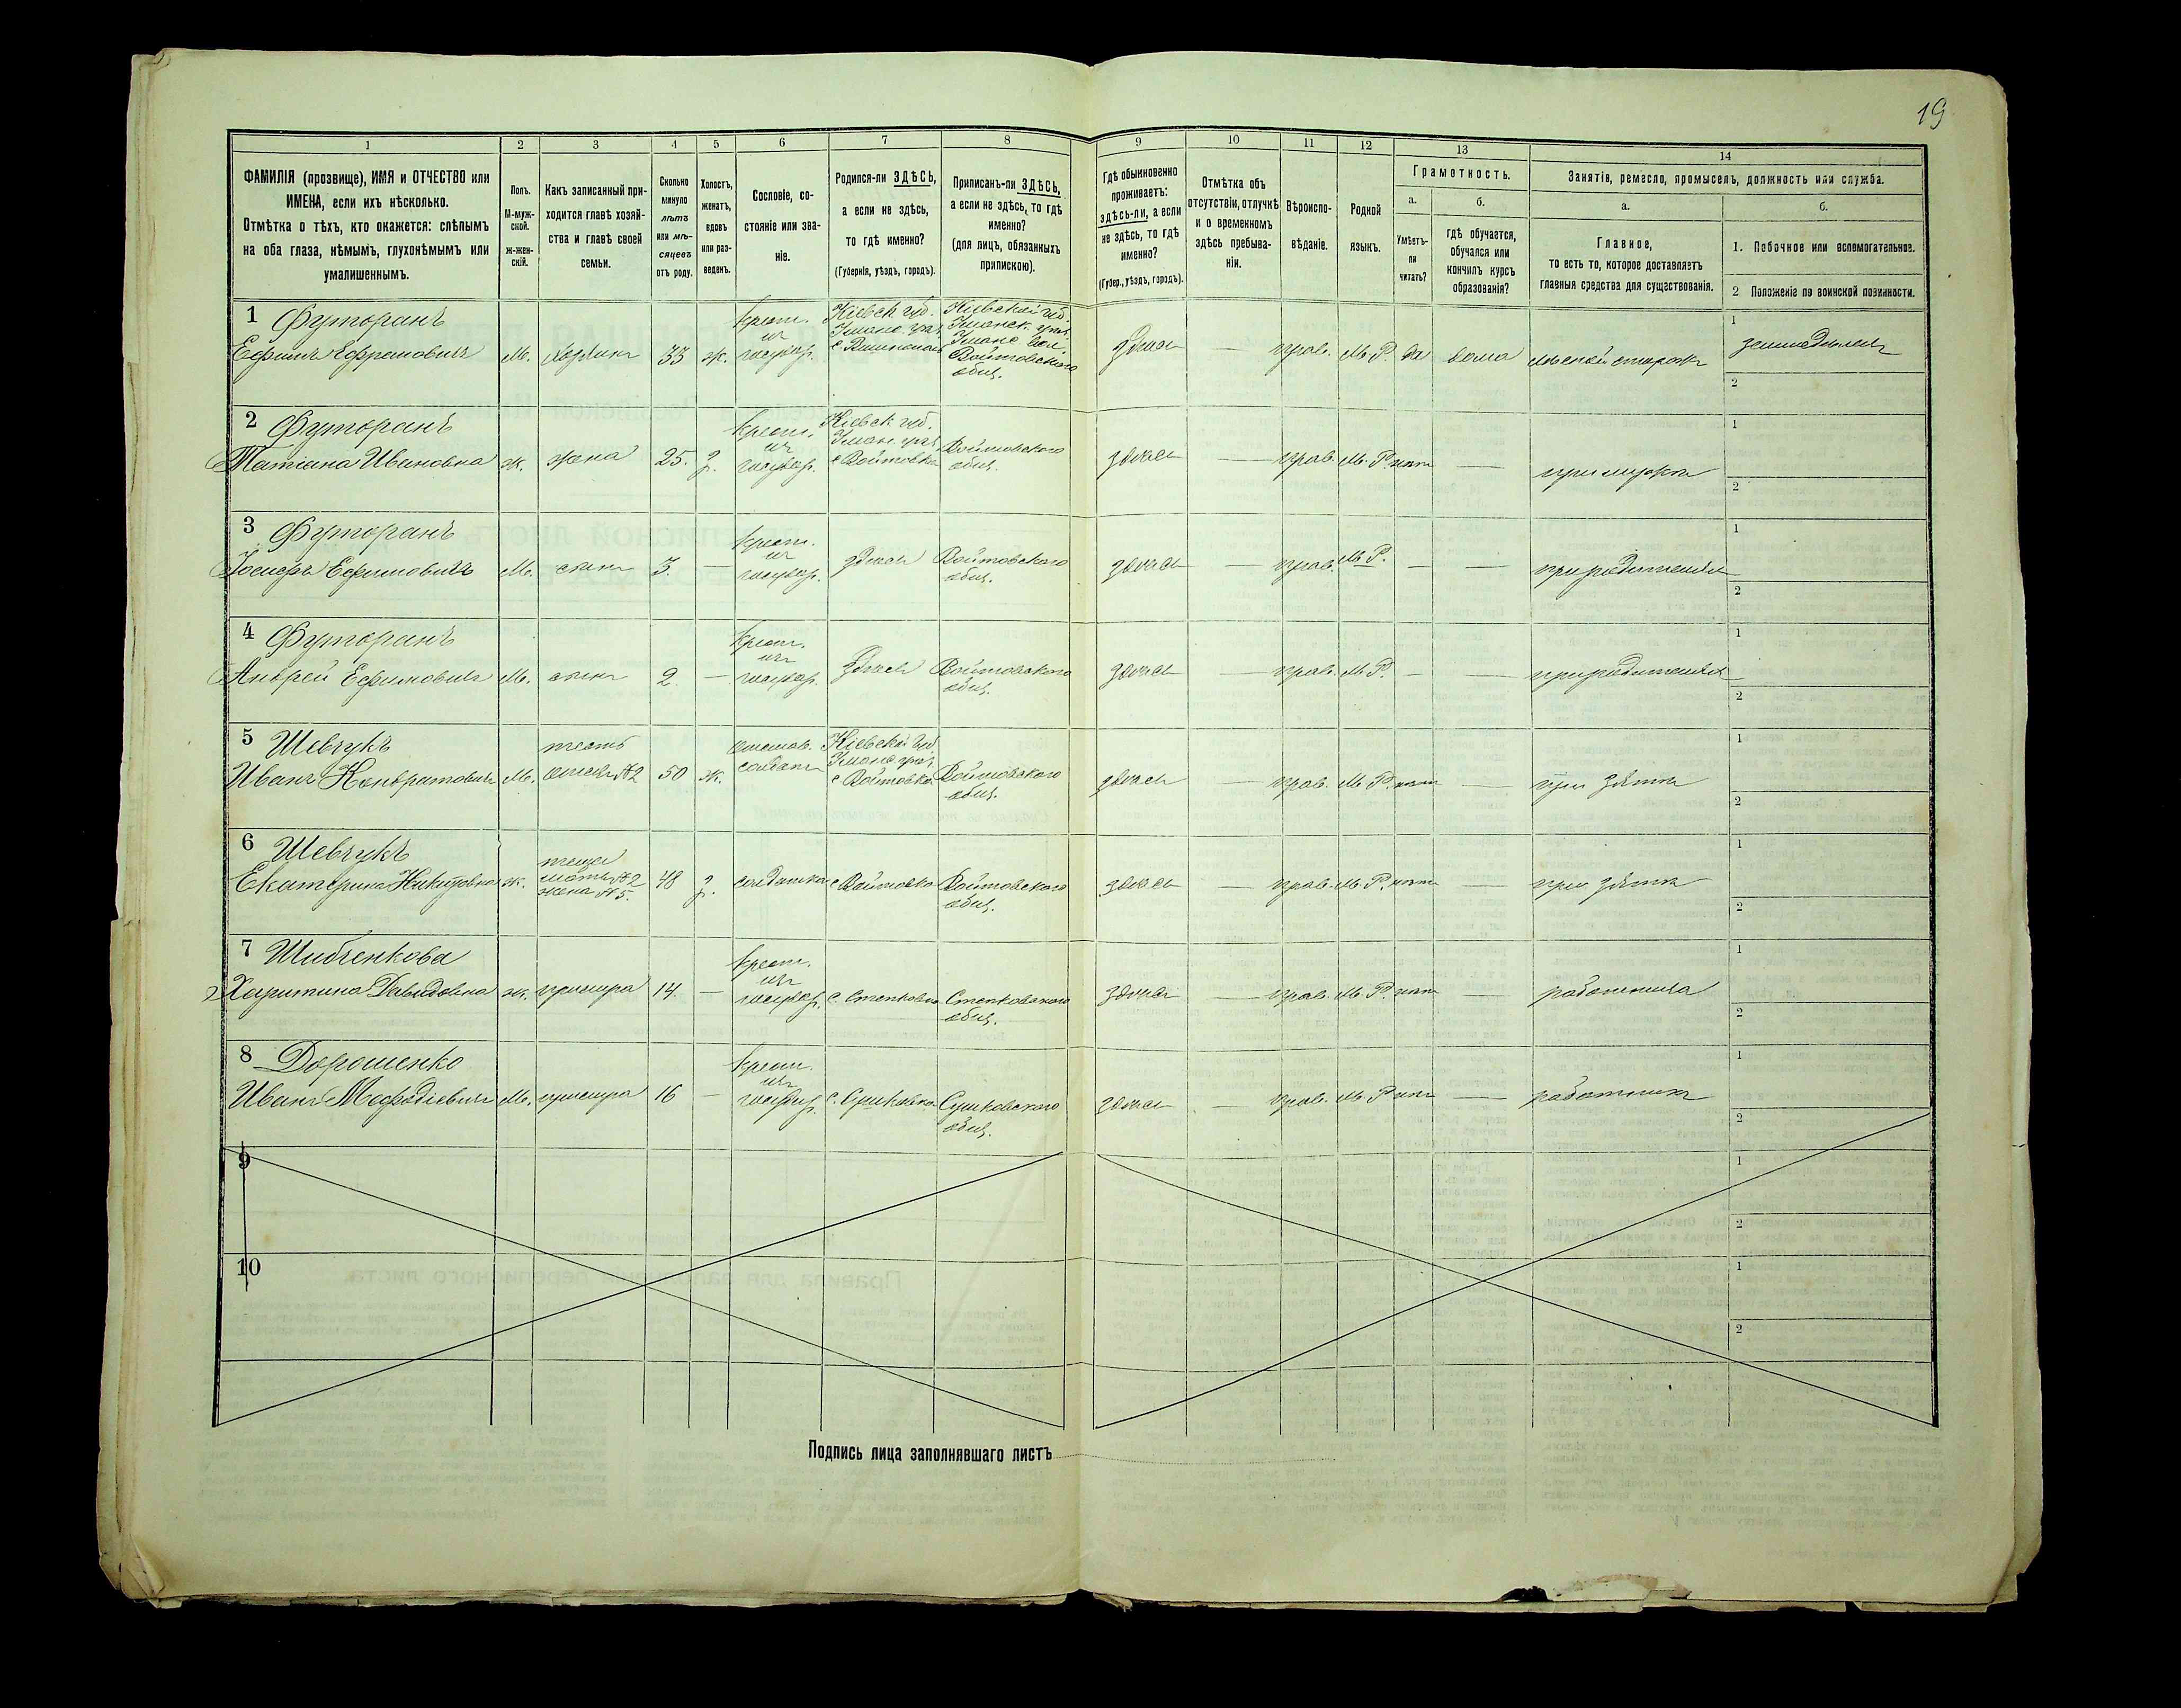 19
1 2 3 4 5 6 7 8 9 10 11 12 13 14
ФАМИЛІЯ (прозвище), ИМЯ и ОТЧЕСТВО или
ИМЕНА, если ихъ нѣсколько.
Отмѣтка о тѣхъ, кто окажется: слѣпымъ
на оба глаза, нѣмымъ, глухонѣмымъ или
умалишеннымъ.
Полъ.
М-муж-
ской.
ж-жен-
скій.
Какъ записанный при-
ходится главѣ хозяй-
ства и главѣ своей
семьи.
Сколько
минуло
лѣтъ
или мѣ-
сяцевъ
отъ роду.
Холостъ,
женатъ,
вдовъ
или раз-
веденъ.
Сословіе, со-
стояніе или зва-
ніе.
Родился-ли ЗДѢСЬ,
а если не здѣсь,
то гдѣ именно?
(Губернія, уѣздъ, городъ).
Приписанъ-ли ЗДѢСЬ,
а если не здѣсь, то гдѣ
именно?
(для лицъ, обязанныхъ
припискою).
Гдѣ обыкновенно
проживаетъ:
здѣсь-ли, а если
не здѣсь, то гдѣ
именно?
(Губер., уѣздъ, городъ).
Отмѣтка объ
отсутствіи, отлучкѣ
и о временномъ
здѣсь пребыва-
ніи.
Вѣроиспо-
вѣданіе.
Родной
языкъ.
Грамотность.
а.
Умѣетъ-
ли
читать?
б.
гдѣ обучается,
обучался или
кончилъ курсъ
образованія?
Занятіе, ремесло, промыселъ, должность или служба.
а.
Главное,
то есть то, которое доставляетъ
главныя средства для существованія.
б.
1. Побочное или вспомогательное.
2 Положеніе по воинской повинности.
1 Футоранъ
Ефимъ Ефремовичъ
М.
хозяинъ
33
ж.
крест.
изъ
государ.
Кіевск. губ.
Уманс. уѣз.
Кіевской губ.
Уманск. уѣз.
Уманс. вол.
Войтовского
общ.
здѣсь
—
прав.
М. Р.
да
дома
лѣсной сторожъ
1
земледѣлецъ
2
2 Футоранъ
Татіана Ивановна
ж.
жена
25.
з.
крест.
изъ
государ.
Кіевск. губ.
Уман. уѣз.
с. Войтовка
Войтовского
общ.
здѣсь
—
прав.
М. Р.
нѣтъ
—
при мужѣ
1
2
3 Футоранъ
Іосифъ Ефимовичъ
М.
сынъ
3.
—
крест.
изъ
государ.
здѣсь
Войтовского
общ.
здѣсь
—
прав.
М. Р.
—
—
при родителяхъ
1
2
4 Футоранъ
Андрей Ефимовичъ
М.
сынъ
2.
—
крест.
изъ
государ.
здѣсь
Войтовского
общ.
здѣсь
—
прав.
М. Р.
—
—
при родителяхъ
1
2
5 Шевчукъ
Иванъ Кондратовичъ
М.
тесть
отецъ №2
50
ж.
отстав.
солдатъ
Кіевской губ.
Уманс. уѣз.
с Войтовка
Войтовского
общ.
здѣсь
—
прав.
М. Р.
нѣтъ
—
при зятѣ
1
2
6 Шевчукъ
Екатерина Никитовна
ж.
теща
мать №2
жена №5.
48
з.
солдатка
с Войтовка
Войтовского
общ.
здѣсь
—
прав.
М. Р.
нѣтъ
—
при зятѣ
1
2
7 Шибченкова
Харитина Давидовна
ж.
прислуга
14.
—
крест.
изъ
государ.
с. Степковка
Степковского
общ.
здѣсь
—
прав.
М. Р.
нѣтъ
—
работница
1
2
8 Дорошенко
Иванъ Мефодіевичъ
М.
прислуга
16
—
крест.
изъ
государ.
с. Сушковка
Сушковского
общ.
здѣсь
—
прав.
М. Р.
нѣтъ
—
работникъ
1
2
9
1
2
10
1
2
Подпись лица заполнявшаго листъ